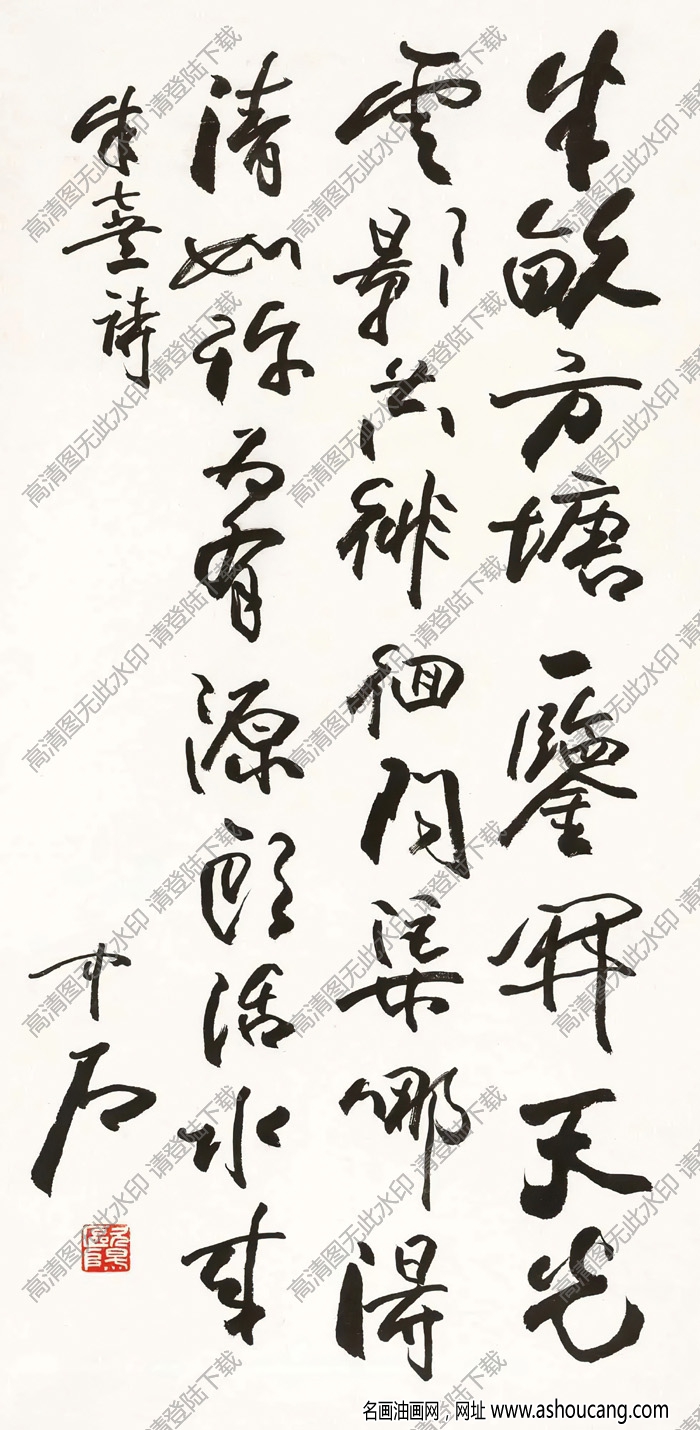 半畝方塘一鑒開天光
雲影共徘徊問渠哪得
清如許為有源頭活水來
朱熹詩
中石
高清图无此水印 请登陆下载
名画油画网，网址 www.ashoucang.com